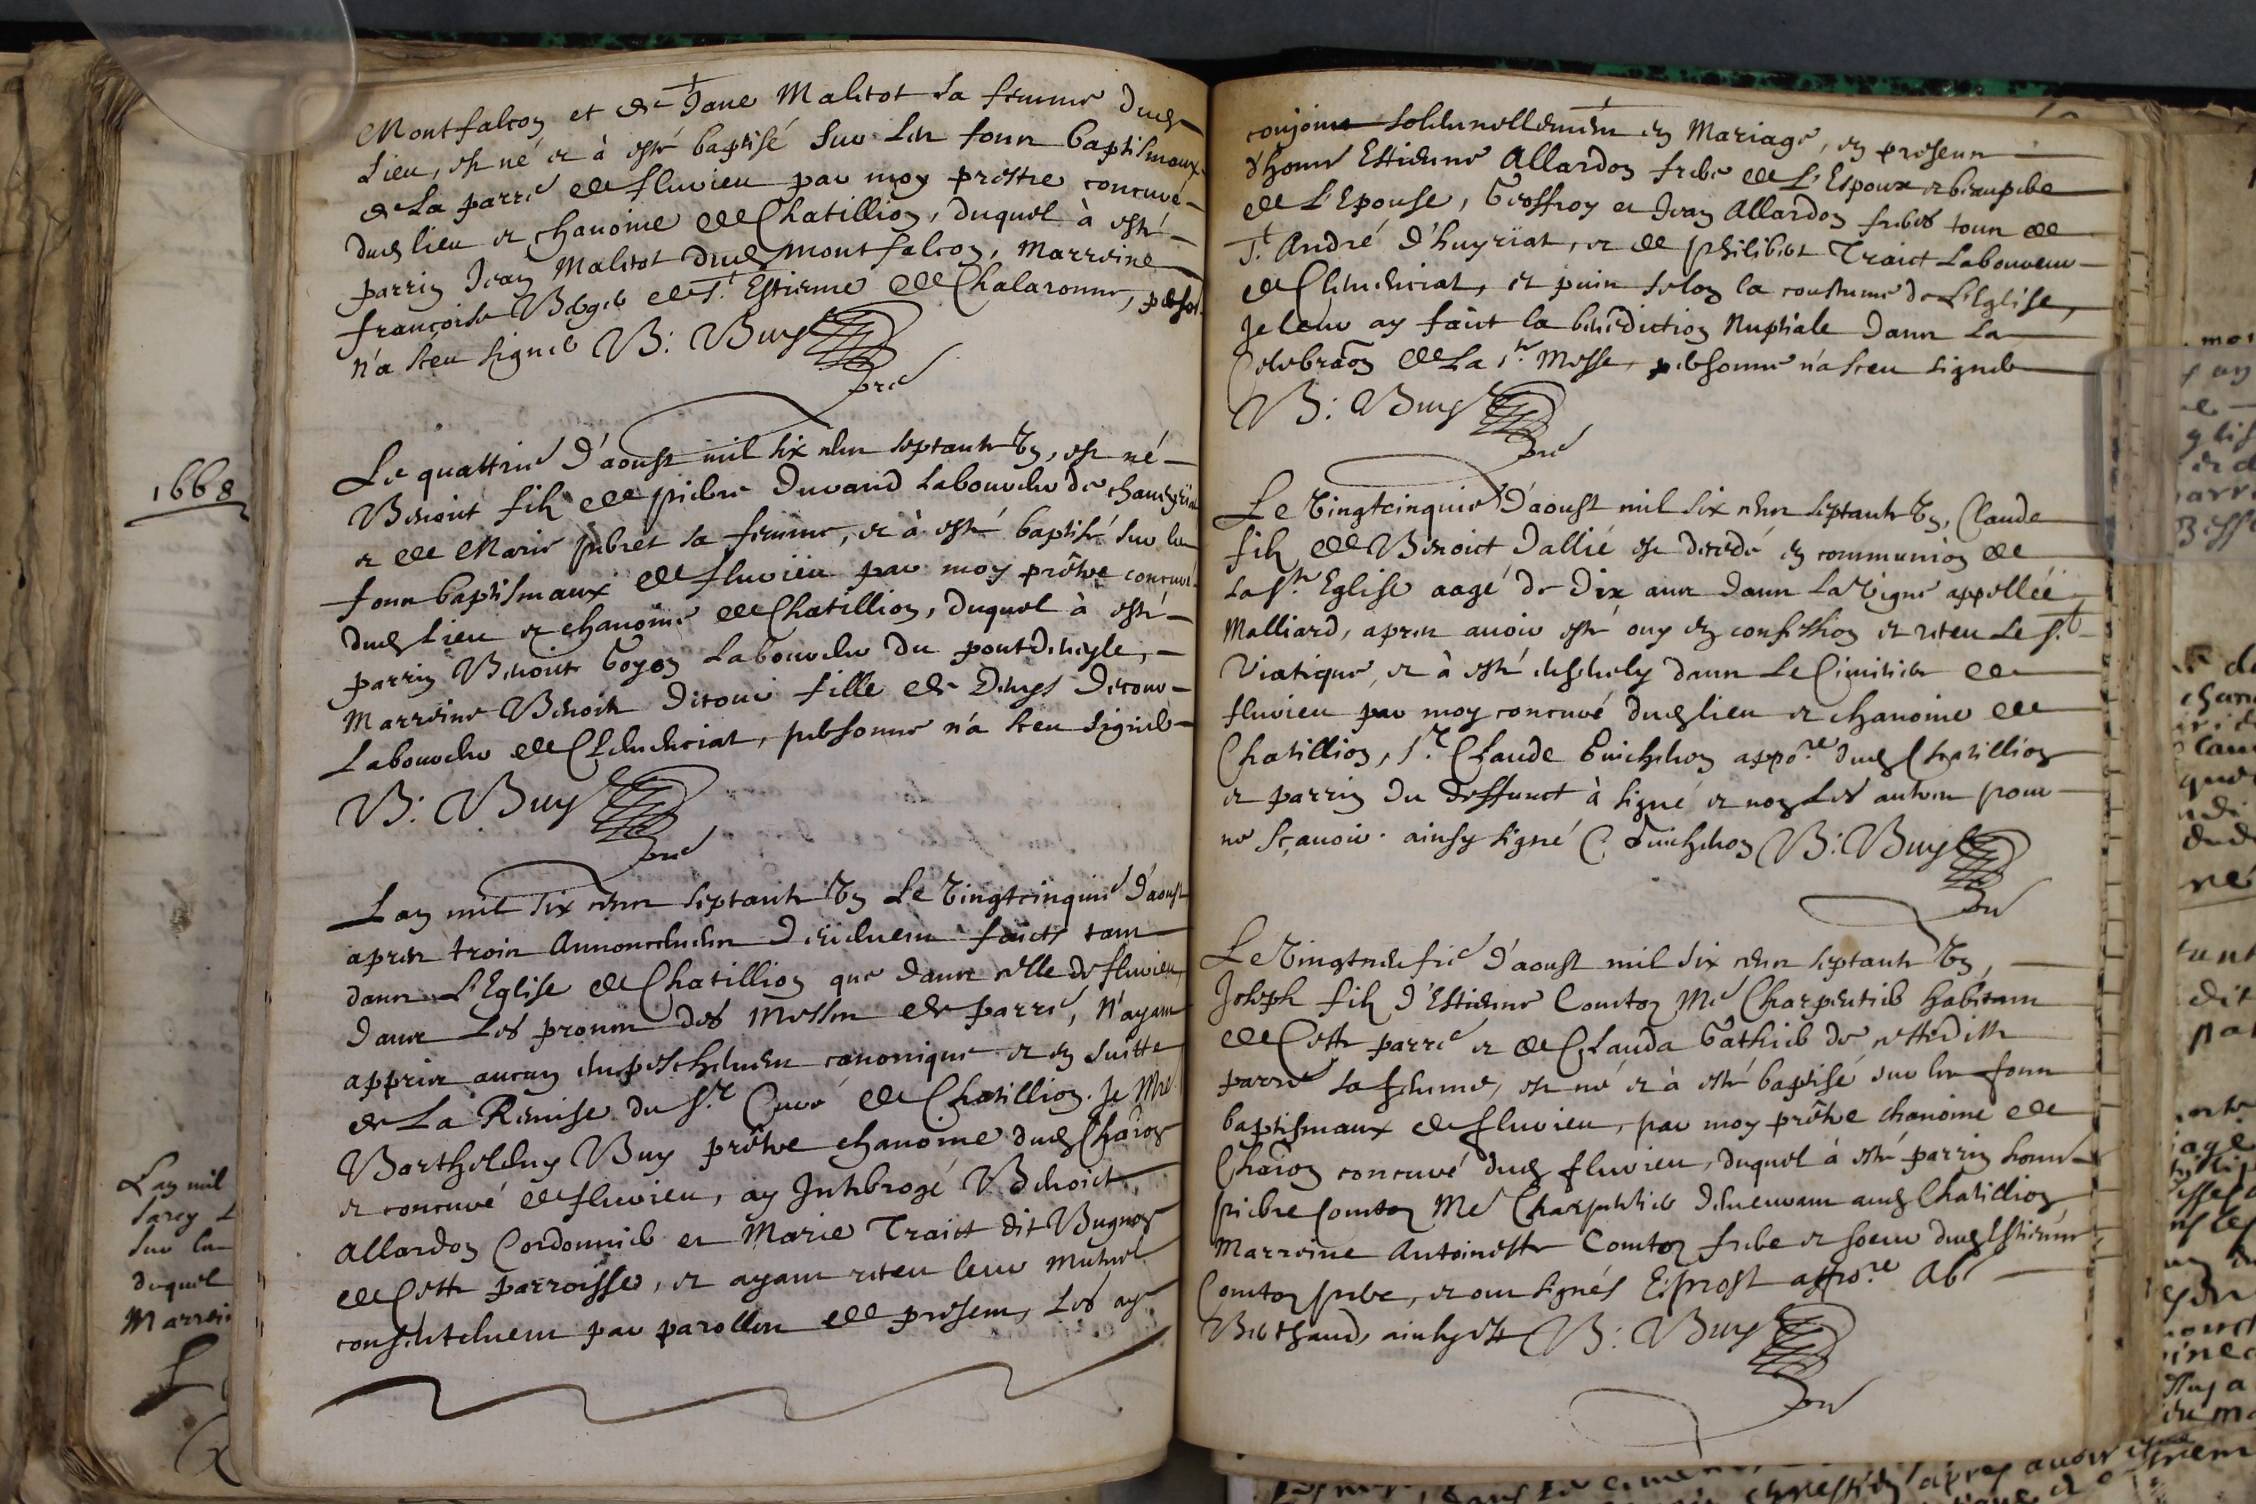 Montfalcon et de Jane Malitot sa femme dud
Lieu, est né et à esté baptisé sur les fonts baptismaux
de La parre de fluvieu par moy prestre concuré
dud lieu et chanoine de Chatillion, duquel à esté
parrin Jean Malitot dud montfalcon, Marreine
francoise Boget de St. Estienne de Chalaronne, person.
n'a sceu signer B: Buy
pre
Le quattrie d'aoust mil six cens septante Un, est né
Benoict fils de pierre Durand Laboureur de chaveyriat
et de Marie pubret sa femme, et à esté baptisé sur les
fonts baptismaux de fluvieu par moy prêtre concuré
dud lieu et chanoine de Chatillion, duquel à esté
parrin Benoict Goyon Laboureur du pontdeveyle,
Marreine Benoite ditoux fille de Denys
Laboureur de Clemenciat, personne n'a sceu signer
B: Buy
pre
Lan mil six cens septante Un Le Vingtcinquie d'aoust
apres trois Annoncemens deüement faicts tant
dans L'Eglise de Chatillion que dans celle de fluvieu
dans Les prones des Messes de parre, N'ayant
appris aucun empeschement canonique et en suitte
de La Remise du Sr. Curé de Chatillion. Je Mre
Barthelemy Buy prêtre chanoine dud Chaõn
et concuré de fluvieu, ay Interrogé Benoict
Allardon Cordonnier et Marie Traict dit Bugnon
de Cette parroisse, et ayant receu leur mutuel
consentement par parolles de present, Les ay
conjoint sollemnellement en Mariage, en presence
d'honn Estienne Allardon frere de L'Espoux et beaupere
de L'Epouse, Geoffroy et Jean Allardon freres tous de
St. André d'huyriat, et de philibert Traict Laboureur
de Clemenciat, et puis selon la coustume de L'Eglise,
Je leur ay faict la benediction Nuptiale dans La
Celebraõn de La Ste. Messe, personne n'a sceu signer
B: Buy
pre
Le Vingtcinquie d'aoust mil six cens septante Un, Claude
fils de Benoict Dallié est decedé en communion de
La Ste. Eglise aagé de Dix ans dans La Vigne appellée
Malliard, apres avoir esté ouy en confession et receu Le St.
Viatique, et à esté ensevely dans Le Cimitier de
fluvieu par moy concuré dud lieu et chanoine de
Chatillion, Sr. Claude Guichenon appore. dud Chatillion
et parrin du deffunct à signé et non Les autres pour
ne Sçavoir. ainsy signé C. Guichenon B: Buy
pre
Le Vingtneufie d'aoust mil six cens septante Un,
Joseph fils d'Estienne Comton Me Charpentier habitant
de Cette parre et de Clauda Gathier de cettedite
parre sa femme, est né et à esté baptisé sur les fonts
baptismaux de fluvieu, par moy prêtre chanoine de
Chaõn concuré dud fluvieu, duquel à esté parrin honn
pierre Comton Me Charpentier demeurant aud Chatillion
Marreine Antoinette Comton frere et soeur dud Estienne
Comton pere, et ont signés E: prost appore. Ab:
Berthaud, ainsy est B: Buy
pre
1668
Lan mil
Sur les
duquel
Marrei